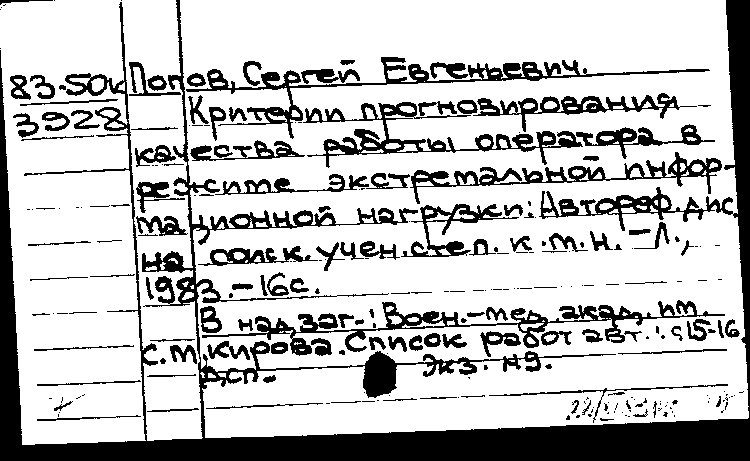 83-50к Попов, Сергей Евгеньевич.
3928 Критерии прогнозирования
качества работы оператора в
режиме экстремальной инфор-
мационной нагрузки: Автореф. дис.
на соиск. учен. степ. к.м.н. - Л.,
1983. - 16 с.
В надзаг.: Воен.-мед. акад. им.
С.М. Кирова. Список работ авт.: с 15-16.
ДСП. Экз. N9.